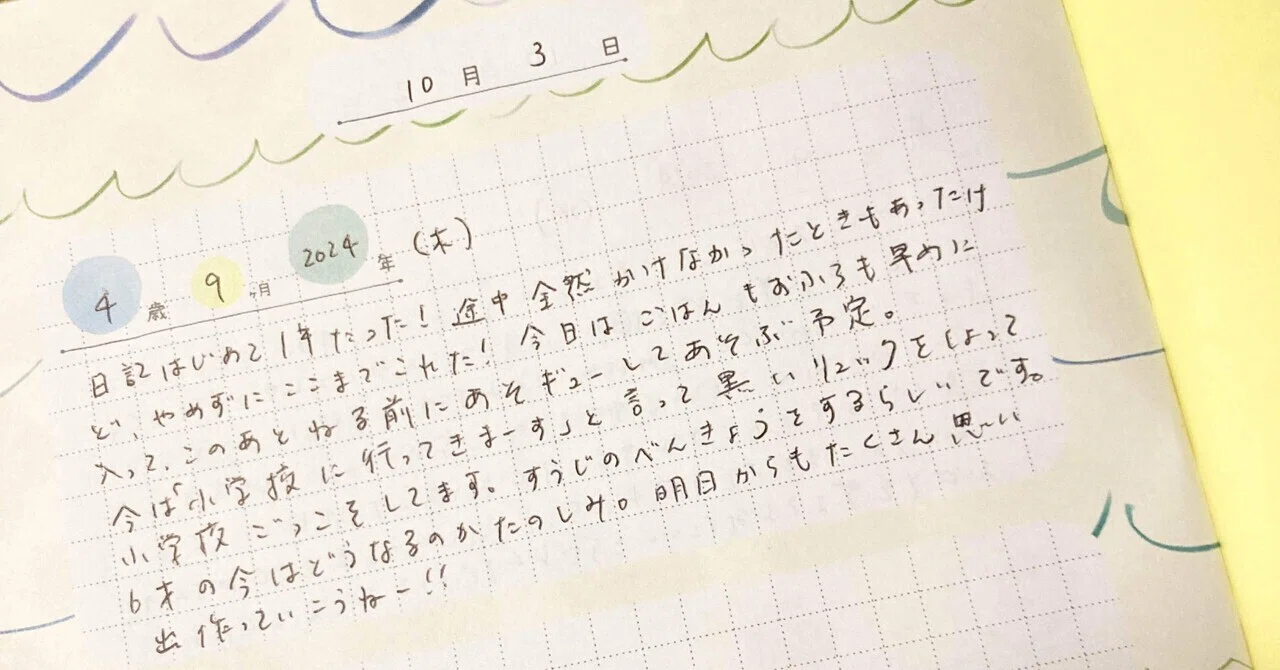 10月 3日
4歳 9ヶ月 2024年 (木)
日記はじめて1年たった！途中全然かけなかったときもあったけ
ど、やめずにここまでこれた！今日はごはんもおふろも早めに
入って、このあとねる前にあそギューしてあそぶ予定。
今は「小学校に行ってきまーす」と言って黒いリュックをしょって
小学校ごっこをしてます。すうじのべんきょうをするらしいです。
6才の今はどうなるのかたのしみ。明日からもたくさん思い
出作っていこうねー!!